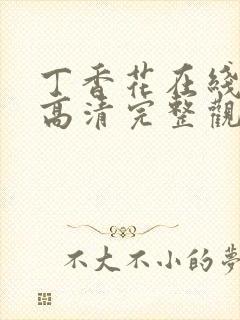 丁香花在綫
高清完整觀
不大不小的夢